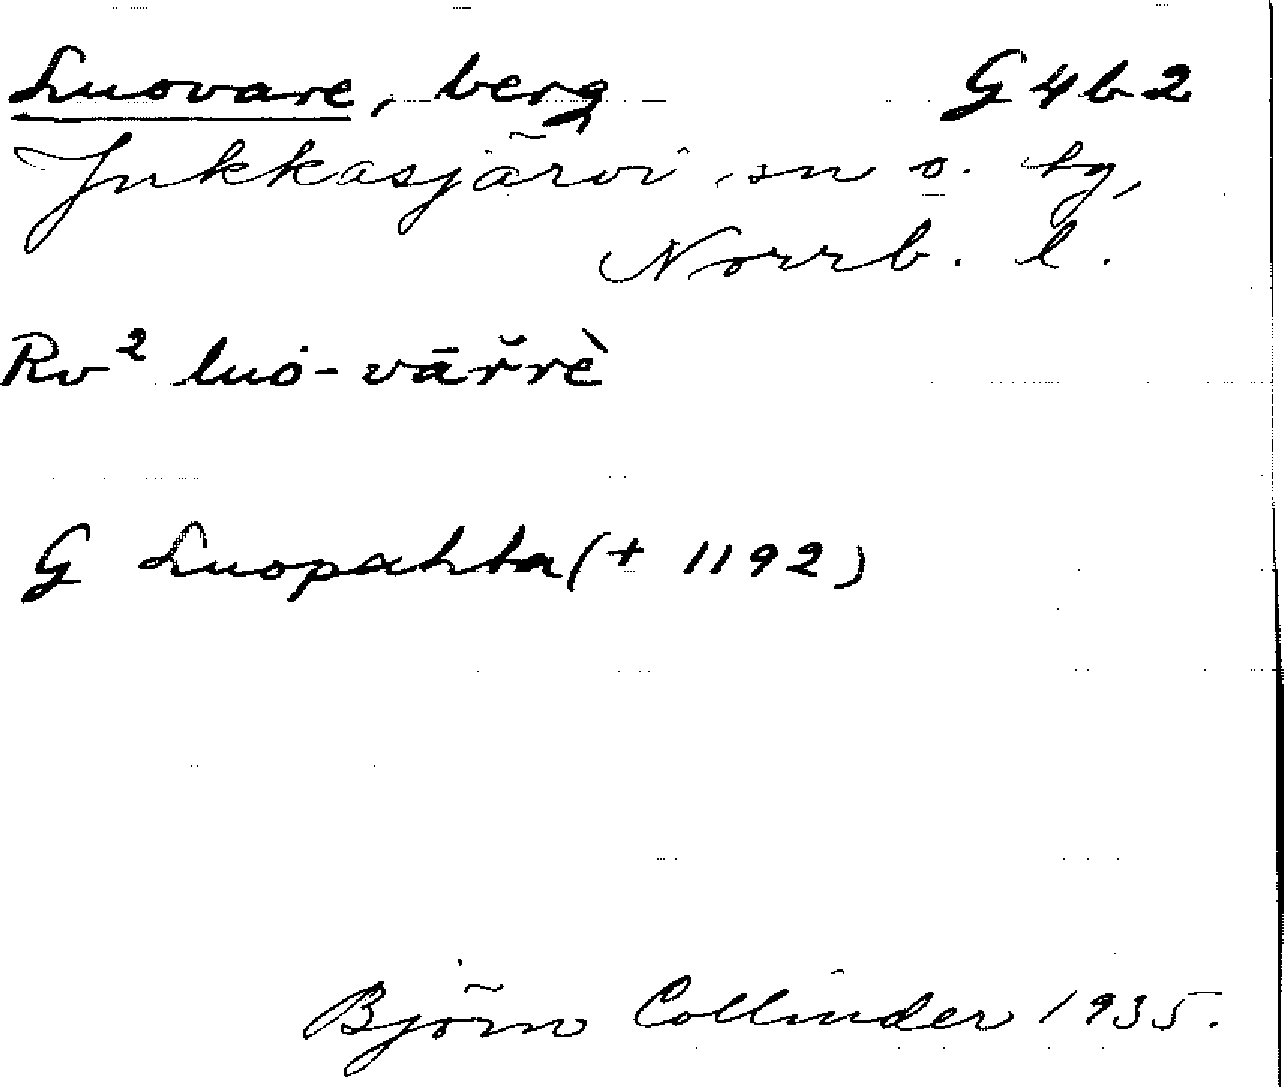 Luovare, berg G4b2
Jukkasjärvi sn o. tg,
Norrb. l.
Rv² luȯ-vāřrè
G Luopahta (+ 1192)
Björn Collinder 1935.